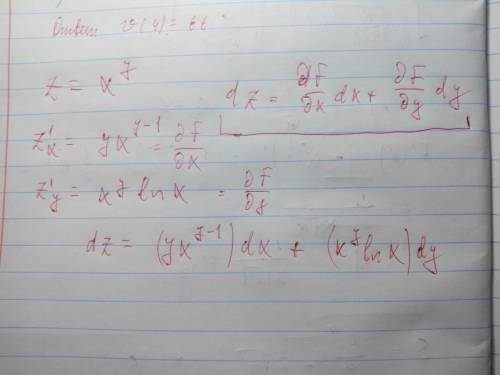 Ответ: v(4) = 66
z = x^y
dz = ∂F/∂x dx + ∂F/∂y dy
z'x = yx^{y-1} = ∂F/∂x
z'y = x^y ln x = ∂F/∂y
dz = (yx^{y-1})dx + (x^y ln x)dy